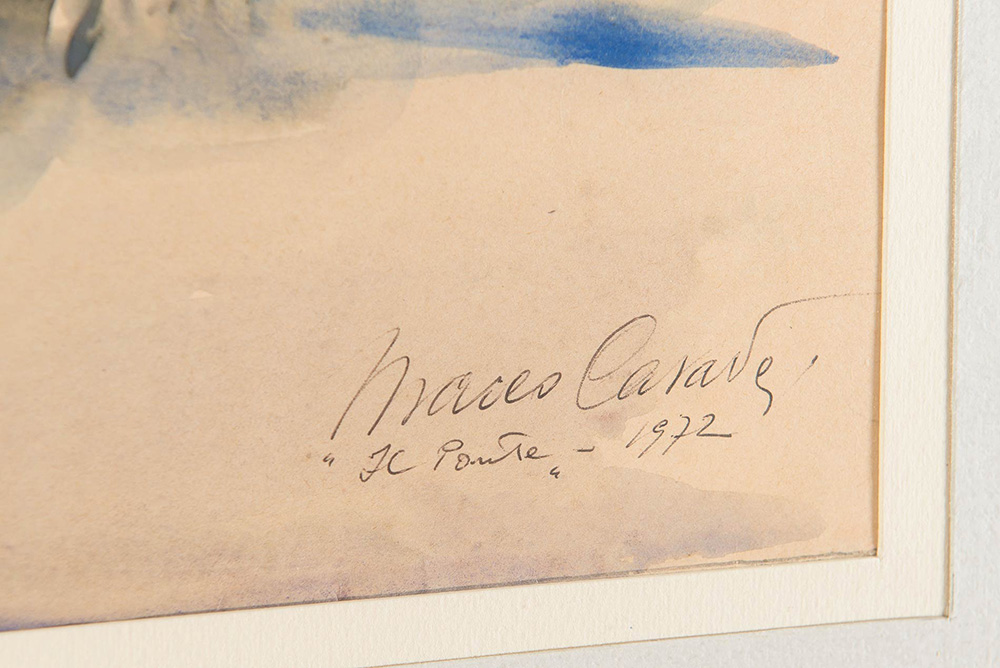 Marco
"Il Ponte" - 1972